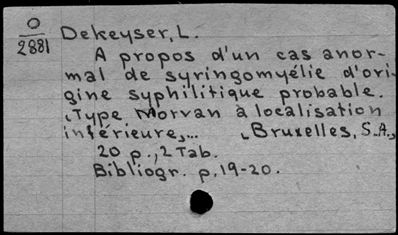 O
2881
Dekeyser, L.
A propos d'un cas anor-
mal de syringomyélie d'ori-
gine syphilitique probable.
Type Morvan à localisation
inférieure,... Bruxelles, S.A.,
20 p., 2 Tab.
Bibliogr. p. 19-20.